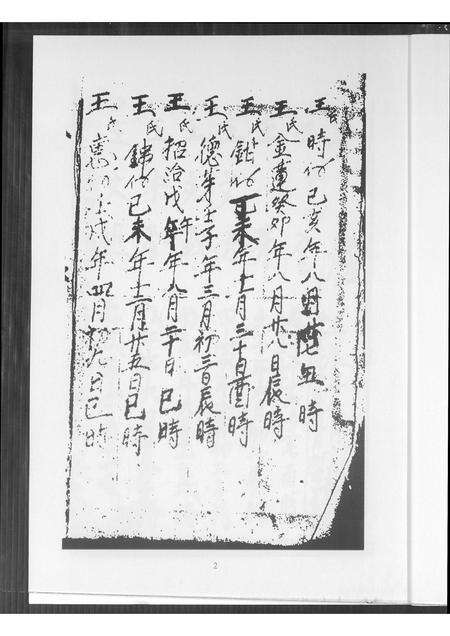 王氏時 己亥年八月廿七 丑時
王氏金蓮癸卯年八月廿九日辰時
王氏 未年十二月三十日酉時
王氏德 壬子年三月初三日辰時
王氏招治戊午年八月二十日巳時
王氏錦 己未年十二月廿五日巳時
王氏 壬戌年四月初九日巳時
2